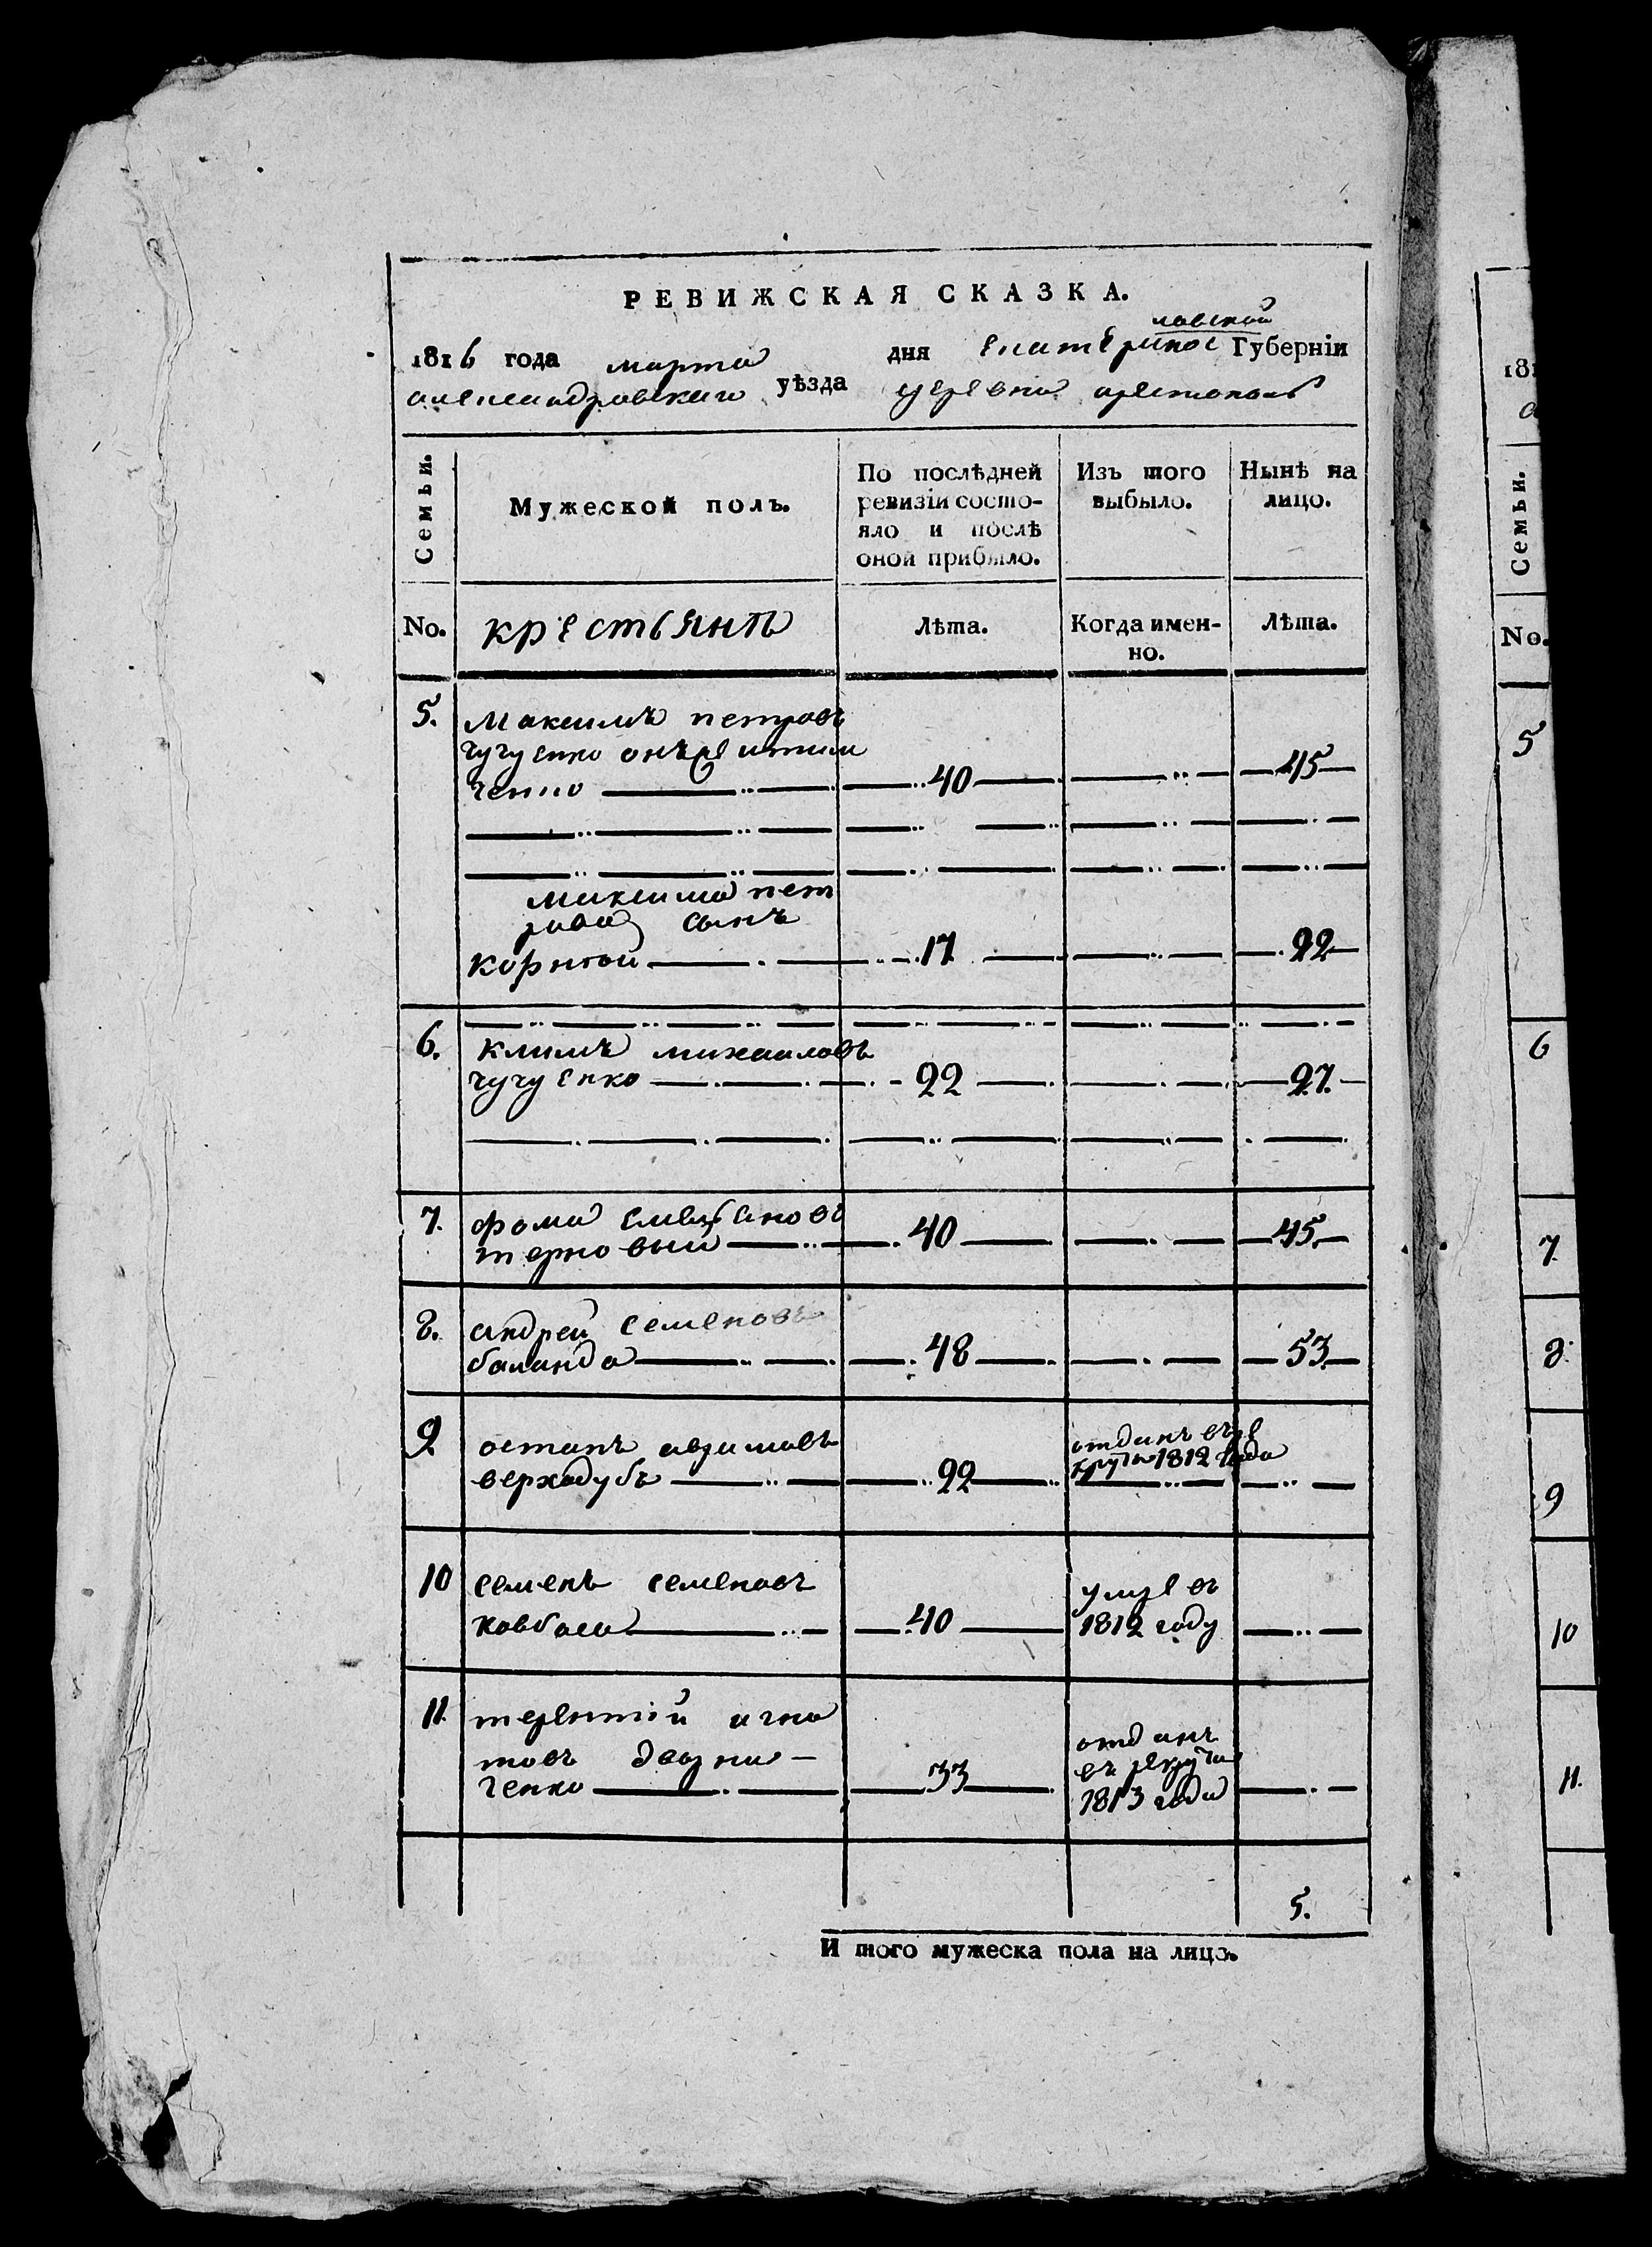 РЕВИЖСКАЯ СКАЗКА.
ловской
1816 года марта дня екатеринос Губернiи
александровскаго уѣзда деревни
Семьи.
Мужеской полъ.
По послѣдней ревизiи состо-
яло и послѣ оной прибыло.
Изъ того выбыло.
Нынѣ на лицо.
No. крестьянъ Лѣта. Когда имен-
но. Лѣта.
5. Максимъ петровъ
чучуенко онъже
ченко 40 45
максима пет
рова сынъ
корней 17 22
6. климъ михаиловъ
чучуенко 22 27
7. фома
терновый 40 45
8. андрей семеновъ
баланда 48 53
9 остапъ аврамовъ отданъ въ ре
верходубъ 22 круты 1812 года
10 семенъ семеновъ умре въ
ковбаса 40 1812 году
11. терентiй игна
товъ отданъ
ченко 33 въ рекруты
1813 года
5.
И того мужеска пола на лицо.
181
Семьи.
No.
5
6
7
8
9
10
11.